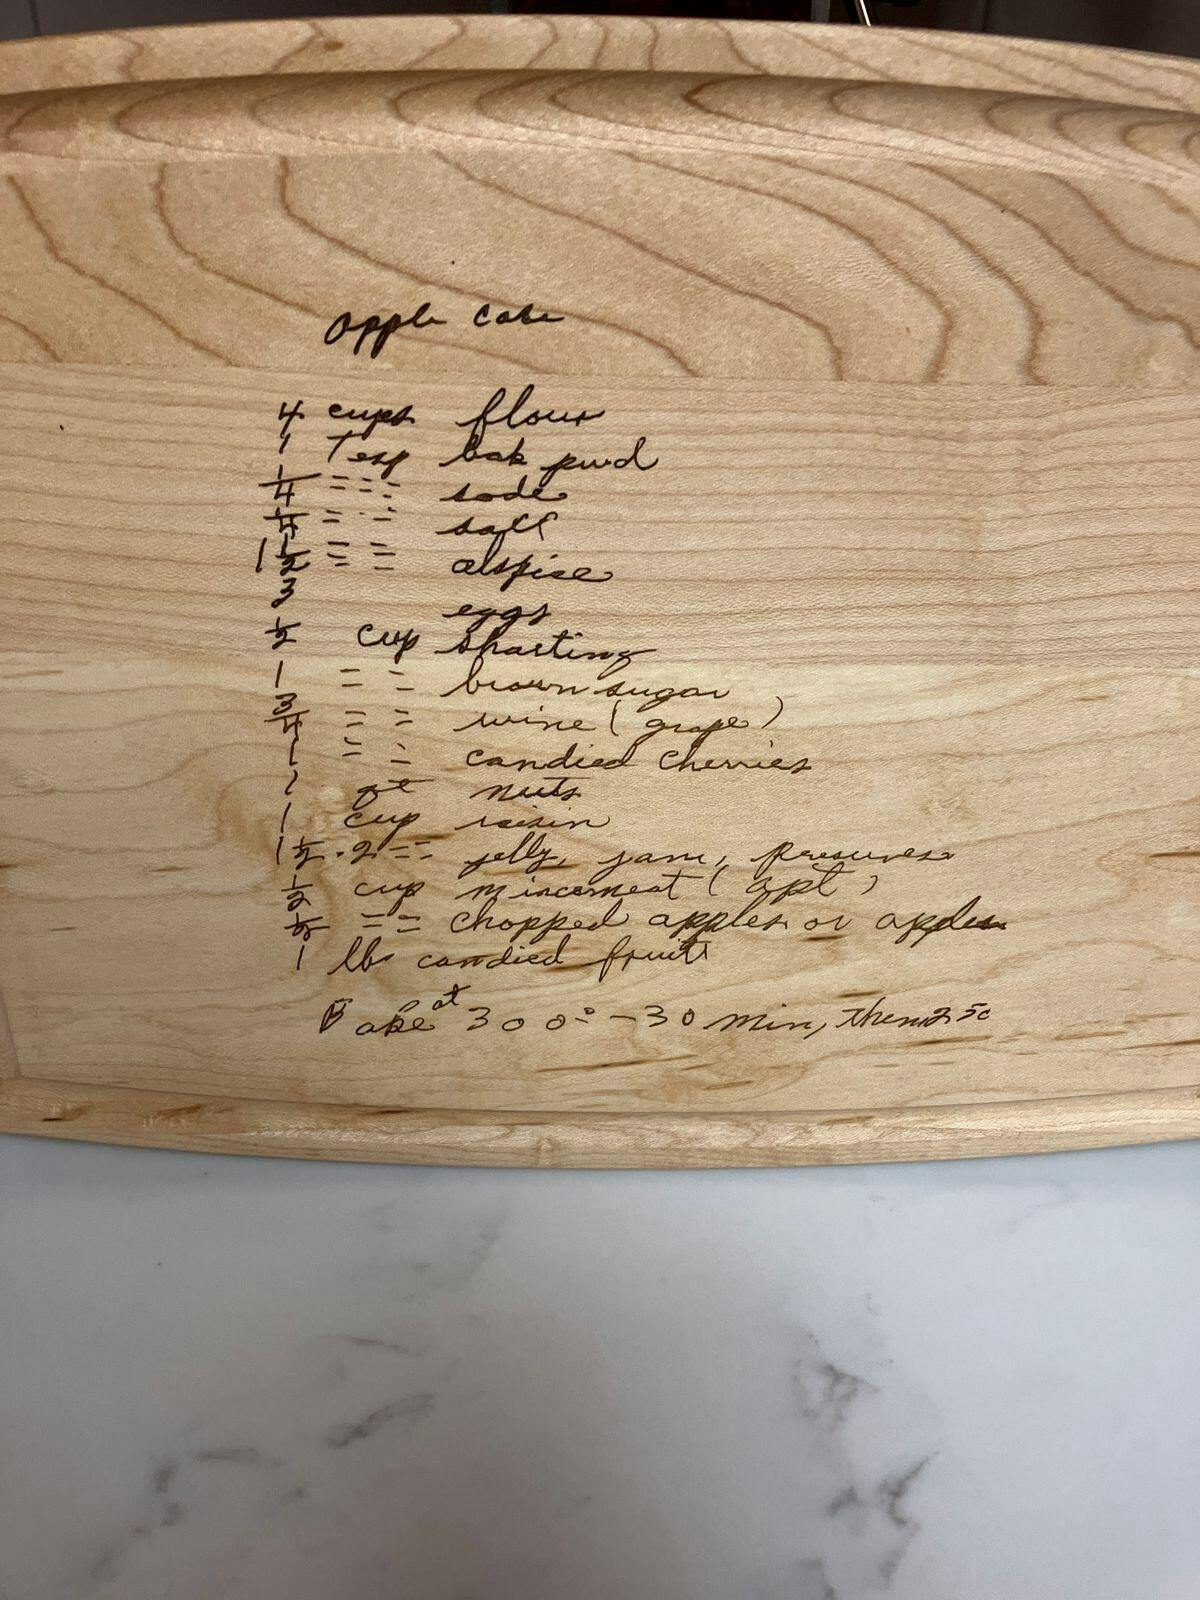 Apple Cake
4 cups flour
1 Tesp bak pwd
1/4 = = soda
1/4 = = salt
1 1/2 = = alspice
3 eggs
1/2 cup shorting
1 = = brown sugar
3/4 = = wine (grape)
1 = = candied cherries
1 qt nuts
1 cup raisin
1 1/2 - 2 = = jelly, jam, preserves
1/2 cup mincemeat (opt)
1/2 = = chopped apples or apples
1 lbs candied fruit
Bake at 300° - 30 min, then 250